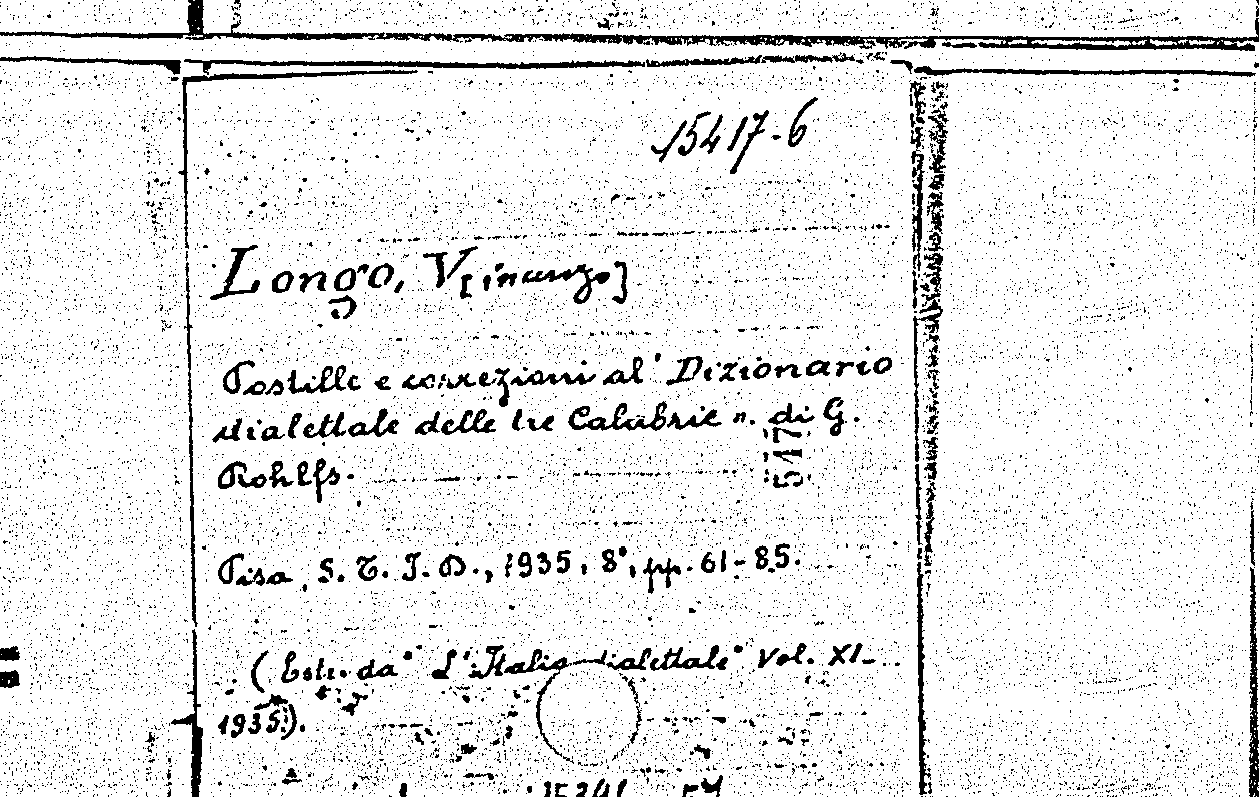 15417-6
Longo, V[incenzo]
Postille e correzioni al' Dizionario
dialettale delle tre Calabrie ". di G.
Rohlfs.
547
Pisa, S. T. I. D., 1935, 8°, pp. 61-85.
(Estr. da " L'Italia dialettale" Vol. XI-
1935).
15241 57